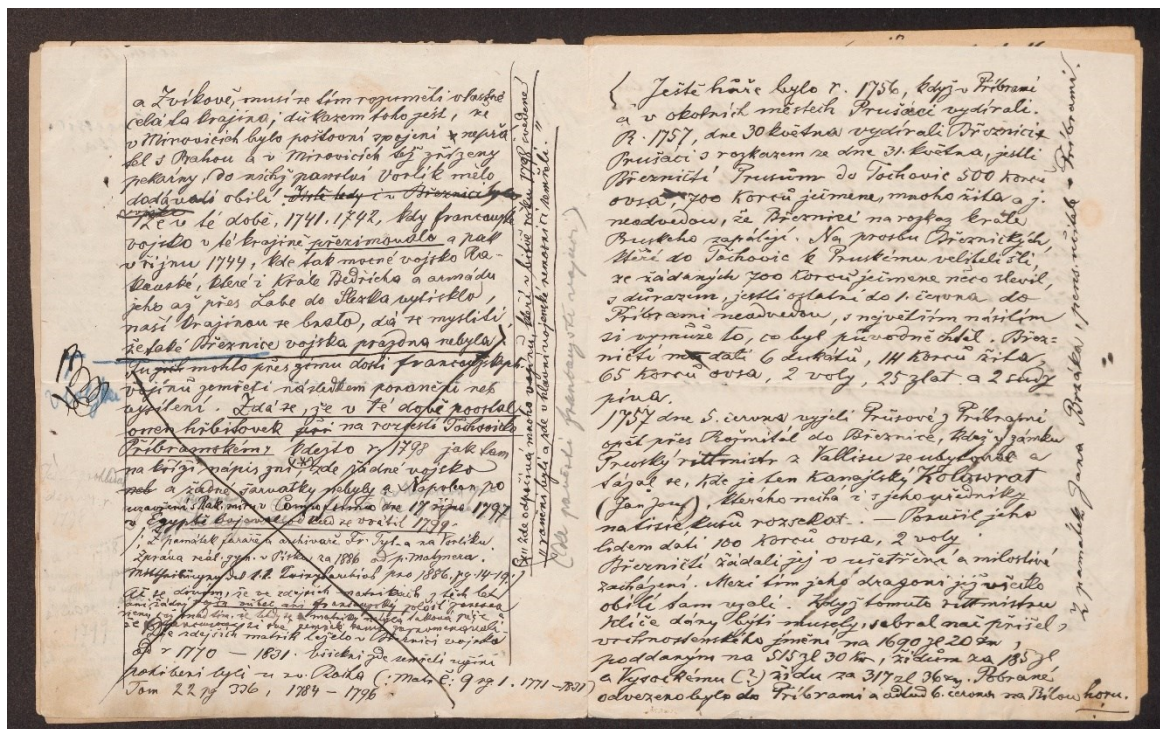 a Zvíkově, musí se tím rozuměti vlastně
celá ta krajina; důkazem toho jest, že
v Mirovicích bylo poštovní spojení nepřá
tel s Prahou a v Mirovicích též zřízeny
pekárny, do nichž panství Vorlík mělo
dodávati obilí. Jistě tedy i v Březnici bylo
vojsko
Že v té době, 1741. 1742, kdy francouzské
vojsko v té krajině přezimovalo a pak
v říjnu 1744, kde tak mocné vojsko Ra-
kouské, které i krále Bedřicha a armádu
jeho až přes Labe do Slezka vytisklo,
naší krajinou se bralo, dá se mysliti,
že také Březnice vojska prázdna nebyla
mohlo přes zimu dosti francouzských
vojínů zemříti následkem poranění neb
vysílení. Zdá se, že v té době povstal
onen hřbitovek na rozcestí Tochovicko
Příbramském, kdežto r. 1798 jak tam
na kříži nápis zní, zde žádné vojsko
neb a žádné šarvátky nebyly a Napoleon po
uzavření v Campoformio dne 17 října 1797
v Egyptě bojoval odkud se vrátil 1799.
Z památek archiváře Fr. Tyl-a na Vorlíku.
Zpráva reál. gym. v Písku za 1886 od p. Matznera.
pro 1886, pg 14-19.
že zdejších matrik leželo v Březnici vojsko
od r 1770 – 1831. Všickni zde zemřelí vojíni
pohřbeni byli u sv. Rocha (: Matr. č: 9 pg 1. 1771–1831)
Tom 22 pg 336, 1784 – 1796
zde odpočívá mnoho vojínů, kteří v bitvě roku 1798 svedené
raněni byli a zde v hlavní vojenské nemocnici zemřeli."
(Zde pohřbeni francouzští vojíni)
Ještě hůře bylo r. 1756, když v Příbrami
a v okolních městech Prušáci vydírali.
R. 1757, dne 30 května vydírali Březnici
Prušáci s rozkazem ze dne 31. května, jestli
Březničtí Prusům do Tochovic 500 korců
ovsa, 700 korců ječmene, mnoho žita a j.
neodvedou, že Březnici na rozkaz krále
Pruského zapálejí. Na prosbu Březnických,
kteří do Tochovic k Pruskému veliteli šli,
ze žádaných 700 korců ječmene něco slevil,
s důrazem, jestli ostatní do 1. června do
Příbrami neodvedou, s největším násilím
si vymůže to, co byl původně chtěl. Břez-
ničtí dali 6 dukátů, 114 korců žita,
65 korců ovsa, 2 voly, 25 zlat a 2 sudy
piva.
1757 dne 5. června vyjeli Prusové z Příbrami
opět přes Rožmitál do Březnice, když v zámku
Pruský rittmistr z Vallisu se ubytoval a
tázal se, kde je ten kanajlský Kolowrat
(Jan Josef), kterého nechá i s jeho úředníky
na tisíc kusů rozsekat. — Poručil jeho
lidem dáti 100 korců ovsa, 2 voly.
Březničtí žádali jej o ušetření a milostivé
zacházení. Mezi tím jeho dragoni jej všecko
obilí tam vzali. Když tomuto rittmistru
klíče dány býti musely, sebral nač přišel,
vrchnostenského jmění na 1690 zl 20 kr,
poddaným na 515 zl 30 kr, židům za 185 zl
a Vysockému (?) židu za 317 zl 36 kr. Pobrané
odvezeno bylo do Příbrami a odtud 6. června na Bílou horu.
Z památek Jana Brzáka, pens. učitele v Příbrami.